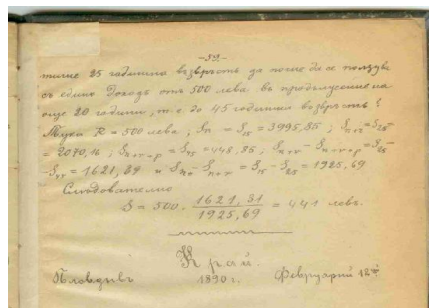 -59-
тигне 25 годишна възрасть да почне да се ползува
съ единъ доходъ отъ 500 лева въ продължение на
още 20 години, т.е. до 45 годишна възрасть?
Тука R = 500 лева; Sn = S15 = 3995,85; Sn+r = S25
= 2070,16; Sn+r+p = S45 = 448,85; Sn+r - Sn+r+p = S25
- S45 = 1621,31 и Sn - Sn+r = S15 - S25 = 1925,69
Следователно
S = 500 · 1621,31 / 1925,69 = 441 левъ.
Край.
Пловдивъ 1890 г. Февруарий 12ий